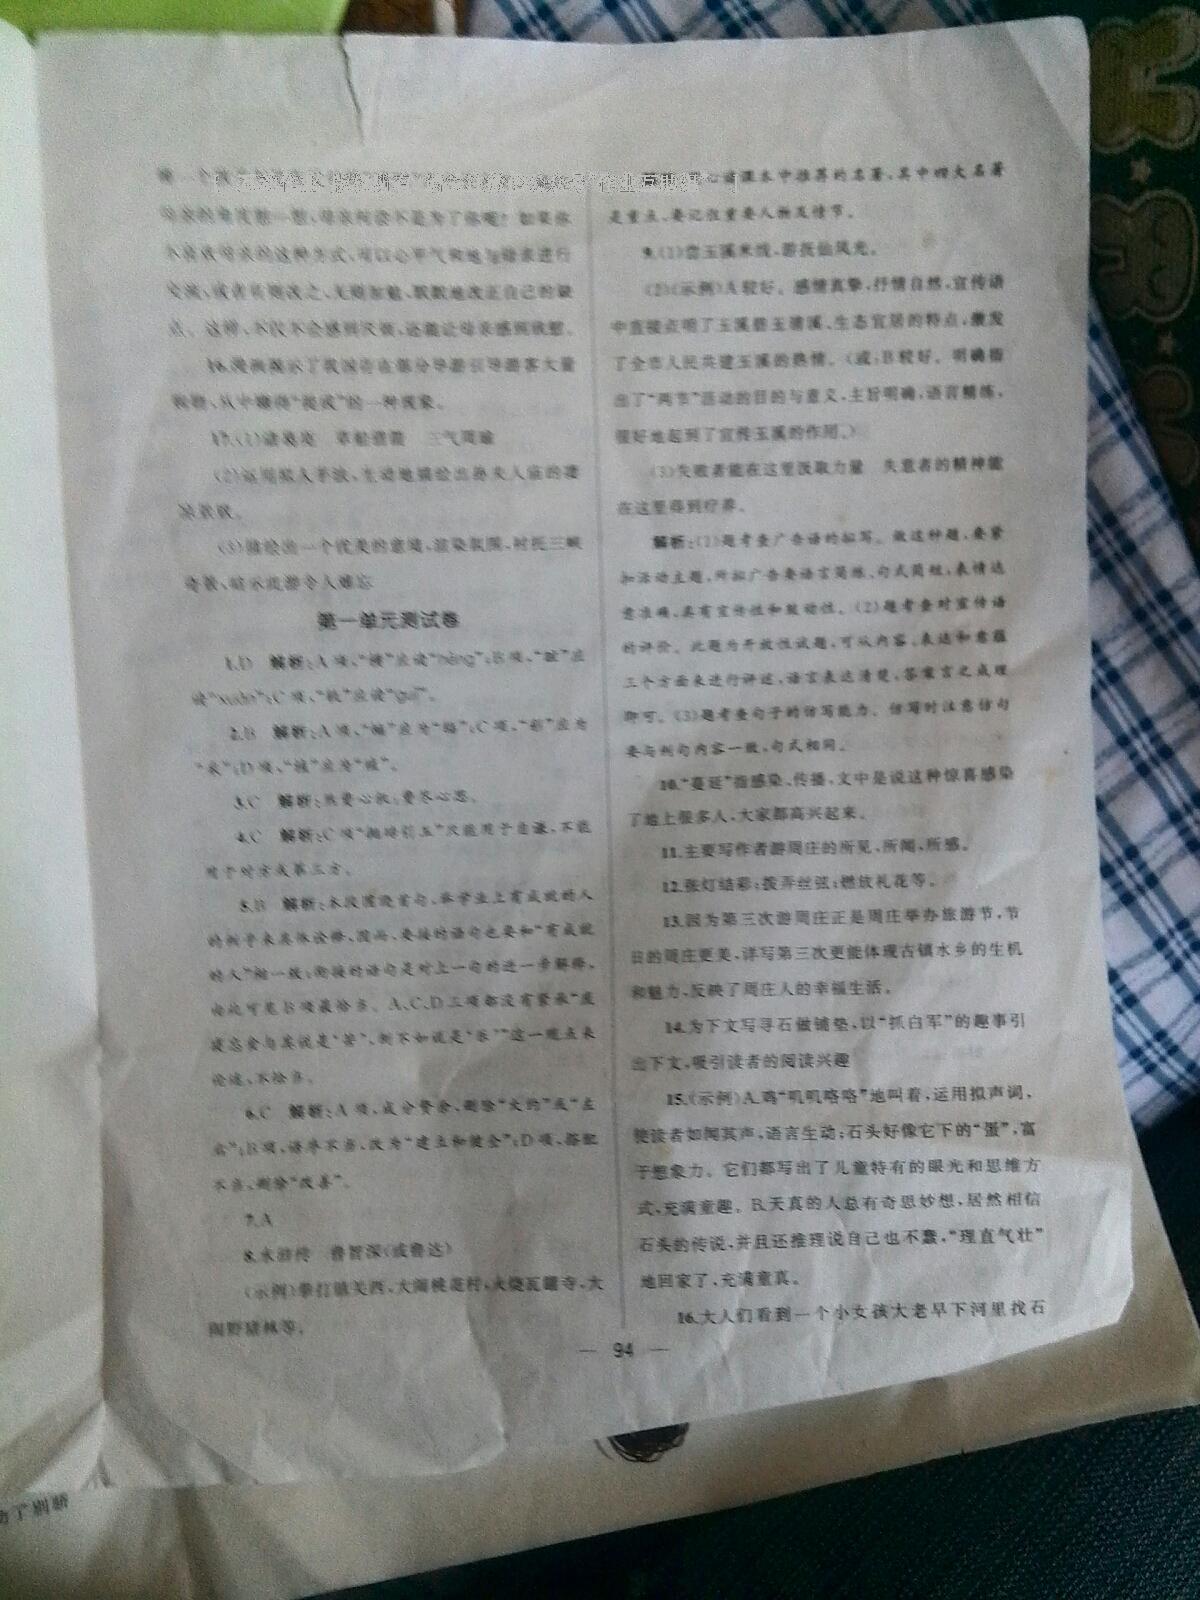 母亲的角度想一想,母亲何尝不是为了你呢?如果你
不喜欢母亲的这种方式,可以心平气和地与母亲进行
交流,或者有则改之、无则加勉,默默地改正自己的缺
点。这样,不仅不会感到厌烦,还能让母亲感到欣慰。
16.漫画揭示了我国存在部分导游引导游客大量
购物,从中赚得“提成”的一种现象。
17.(1)诸葛亮 草船借箭 三气周瑜
(2)运用拟人手法,生动地描绘出孙夫人庙的凄
凉景致。
(3)描绘出一个优美的意境,渲染氛围,衬托三峡
奇景,暗示此游令人难忘
第一单元测试卷
1.D 解析:A项,“横”应读“hèng”;B项,“眩”应
读“xuàn”;C项,“瑰”应读“guī”。
2.B 解析:A项,“ ”应为“ ”;C项,“ ”应为
“ ”;D项,“ ”应为“ ”。
3.C 解析:煞费心机:费尽心思。
4.C 解析:C项“抛砖引玉”只能用于自谦,不能
用于对方或第三方。
5.B 解析:本段围绕首句,举学业上有成就的人
的例子来具体诠释,因而,要接的语句也要和“有成就
的人”相一致;衔接的语句是对上一句的进一步解释,
由此可见B项最恰当。A、C、D三项都没有紧承“废
寝忘食与其说是‘苦’,倒不如说是‘乐’”这一观点来
论述,不恰当。
6.C 解析:A项,成分赘余,删除“大约”或“左
右”;B项,语序不当,改为“建立和健全”;D项,搭配
不当,删除“改善”。
7.A
8.水浒传 鲁智深(或鲁达)
(示例)拳打镇关西,大闹桃花村,火烧瓦罐寺,大
闹野猪林等。
心读课本中推荐的名著,其中四大名著
是重点,要记住重要人物及情节。
9.(1)尝玉溪米线,游抚仙风光。
(2)(示例)A较好。感情真挚,抒情自然,宣传语
中直接点明了玉溪碧玉清溪、生态宜居的特点,激发
了全市人民共建玉溪的热情。(或:B较好。明确指
出了“两节”活动的目的与意义,主旨明确,语言精练,
很好地起到了宣传玉溪的作用。)
(3)失败者能在这里汲取力量 失意者的精神能
在这里得到疗养。
解析:(1)题考查广告语的拟写。做这种题,要紧
扣活动主题,所拟广告要语言简练、句式简短,表情达
意准确,具有宣传性和鼓动性。(2)题考查对宣传语
的评价。此题为开放性试题,可从内容、表达和意蕴
三个方面来进行评述,语言表达清楚,答案言之成理
即可。(3)题考查句子的仿写能力。仿写时注意仿句
要与例句内容一致,句式相同。
10.“蔓延”指感染、传播,文中是说这种惊喜感染
了地上很多人,大家都高兴起来。
11.主要写作者游周庄的所见、所闻、所感。
12.张灯结彩;拨弄丝弦;燃放礼花等。
13.因为第三次游周庄正是周庄举办旅游节,节
日的周庄更美,详写第三次更能体现古镇水乡的生机
和魅力,反映了周庄人的幸福生活。
14.为下文写寻石做铺垫,以“抓白军”的趣事引
出下文,吸引读者的阅读兴趣
15.(示例)A.鸡“叽叽咯咯”地叫着,运用拟声词,
使读者如闻其声,语言生动;石头好像它下的“蛋”,富
于想象力。它们都写出了儿童特有的眼光和思维方
式,充满童趣。B.天真的人总有奇思妙想,居然相信
石头的传说,并且还推理说自己也不蠢,“理直气壮”
地回家了,充满童真。
16.大人们看到一个小女孩大老早下河里找石
— 94 —